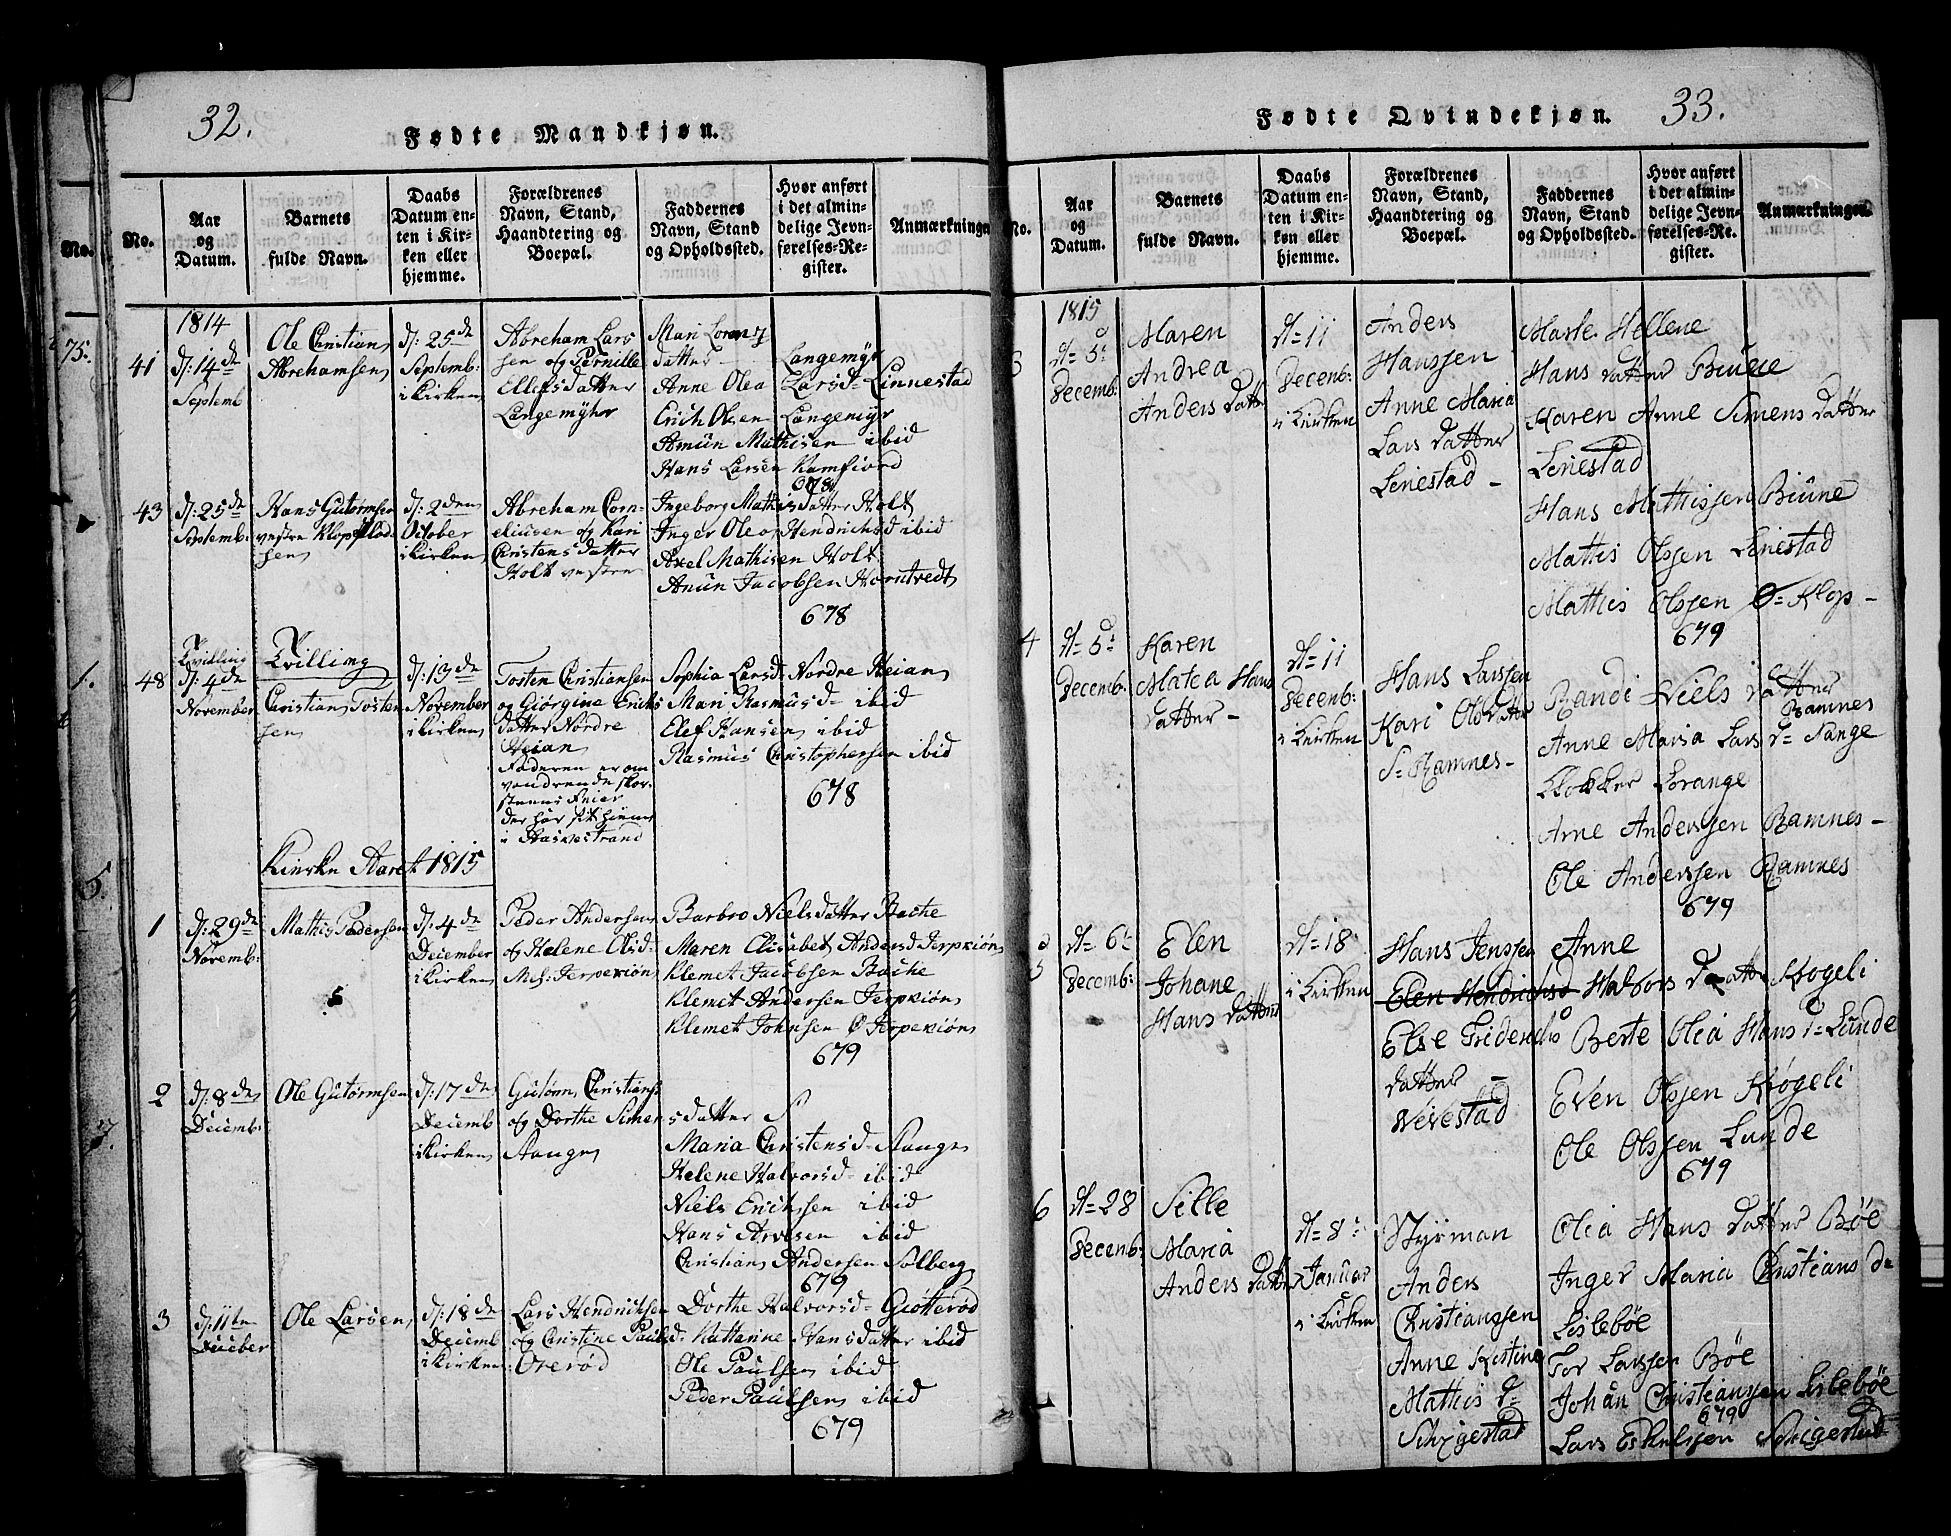 32.
Fødte Mandkjøn.
No.
Aar og Datum.
Barnets fulde Navn.
Daabs Datum enten i Kirken eller hjemme.
Forældrenes Navn, Stand, Haandtering og Boepæl.
Faddernes Navn, Stand og Opholdssted.
Hvor anført i det almindelige Jevnførelses-Register.
Anmærkninger
1814
41
d: 14de
Septemb
Ole Christian
Abrehamsen
d: 25de
Septemb:
i Kirken
Abreham Lars
sen og Pernille
Ellefsdatter
Langemyhr
Mari Lorenz
datter Langemyhr
Anne Olea Larsd= Linnestad
Erich Olsen Langemyr
Amün Mathisen ibid
Hans Larsen Kamfiord
678
43
d: 25de
Septemb:
Hans Gutormsen
vestre Klop
sen
d: 2den
October
i Kirken
Abreham Corn-
eliusen og Kari
Christensdatter
Holt vestre
Ingeborg Mathisdatter Holt
Inger Olea Hendrichsd ibid
Axel Mathisen Holt
Amün Jacobsen Horntvedt
678
48
Tvilling
d: 4de
November
Tvilling
Christian Tosten
sen
d: 13de
November
i Kirken
Tosten Christiansen
og Giørgine Erichs
datter Nordre
Heian
Faderen er om
vandrende skor
steens Feier
der har sit hiem
i Haskestrand
Sophia Larsd= Nordre Heian
Mari Rasmusd= ibid
Elef Hansen ibid
Rasmus Christophersen ibid
678
Kirke Aaret 1815
1
d: 29de
Novemb:
Mathis Pedersen
d: 4de
December
i Kirken
Peder Andersen
og Helene Olsd:
Mel: Jerpekiøn
Barbro Nielsdatter Backe
Maren Elisabet Andersd Jerpekiøn
Klemet Jacobsen Backe
Klemet Andersen Jerpekiøn
Klemet Johnsen Ø Jerpekiøn
679
2
d: 8de
Decemb:
Ole Gutormsen
d: 17de
Decemb
i Kirken
Gutorm Christians:
og Dorthe Simens
datter S
Aange
Maria Christensd= Aange
Helene Halvorsd= ibid
Niels Erichsen ibid
Hans Arvesen ibid
Christian Andersen Solberg
679
3
d: 11te
Deceber
Ole Larsen
d: 18de
Decemb
i Kirken
Lars Hendrichsen
og Christine Paulsd:
Overød
Dorthe Halvorsd= Giøtterød
Kattarine Hansdatter ibid
Ole Paulsen ibid
Peder Paulsen ibid
679
Fødte Qvindekjøn.
33.
No.
Aar og Datum.
Barnets fulde Navn.
Daabs Datum enten i Kirken eller hjemme.
Forældrenes Navn, Stand, Haandtering og Boepæl.
Faddernes Navn, Stand og Opholdssted.
Hvor anført i det almindelige Jevnførelses-Register.
Anmærkninger.
1815
3
d= 5d
Decemb:
Maren
Andrea
Anders datter
d= 11
Decemb:
i Kirken
Anders
Hanssen
Anne Maria
Lars datter
Leniestad -
Marte Hellene
Hans datter Biune
Karen Anne Simens datter
Leniestad
Hans Mathissen Biune
Mattis Olssen Leniestad
Mathis Olssen Ø= Klop-
679
4
d= 5d
Decemb:
Karen
Matea Hans
datter -
d= 11
Decemb:
i Kirken
Hans Larssen
Kari Olsdatter
S= Ramnes -
Randi Niels datter
Ramnes
Anne Maria Lars d= Sange
Klokker Lorange
Arne Anderssen Ramnes -
Ole Anderssen Ramnes
679
5
d= 6te
Decemb:
Elen
Johane
Hans datter
d= 18
i Kirken
Hans Jenssen
Elen Hendrichsd
Else Fridrichs
datter -
Vevestad
Anne
Halvors datter Krogeli
Berte Olia Hans d= Lunde
Even Olssen Krogeli
Ole Olssen Lunde
679
6
d= 28
Decemb:
Sille
Maria
Anders datter
d= 8:
Januar
i Kirken
Styrman
Anders
Christianssen
Anne Kirstine
Mathis d=
Schigestad
Olia Hans datter Bøe
Inger Maria Christians d=
Lislebøe
Tor Larssen Bøe
Johan Christianssen Lislebøe
679
Lars Eskelssen